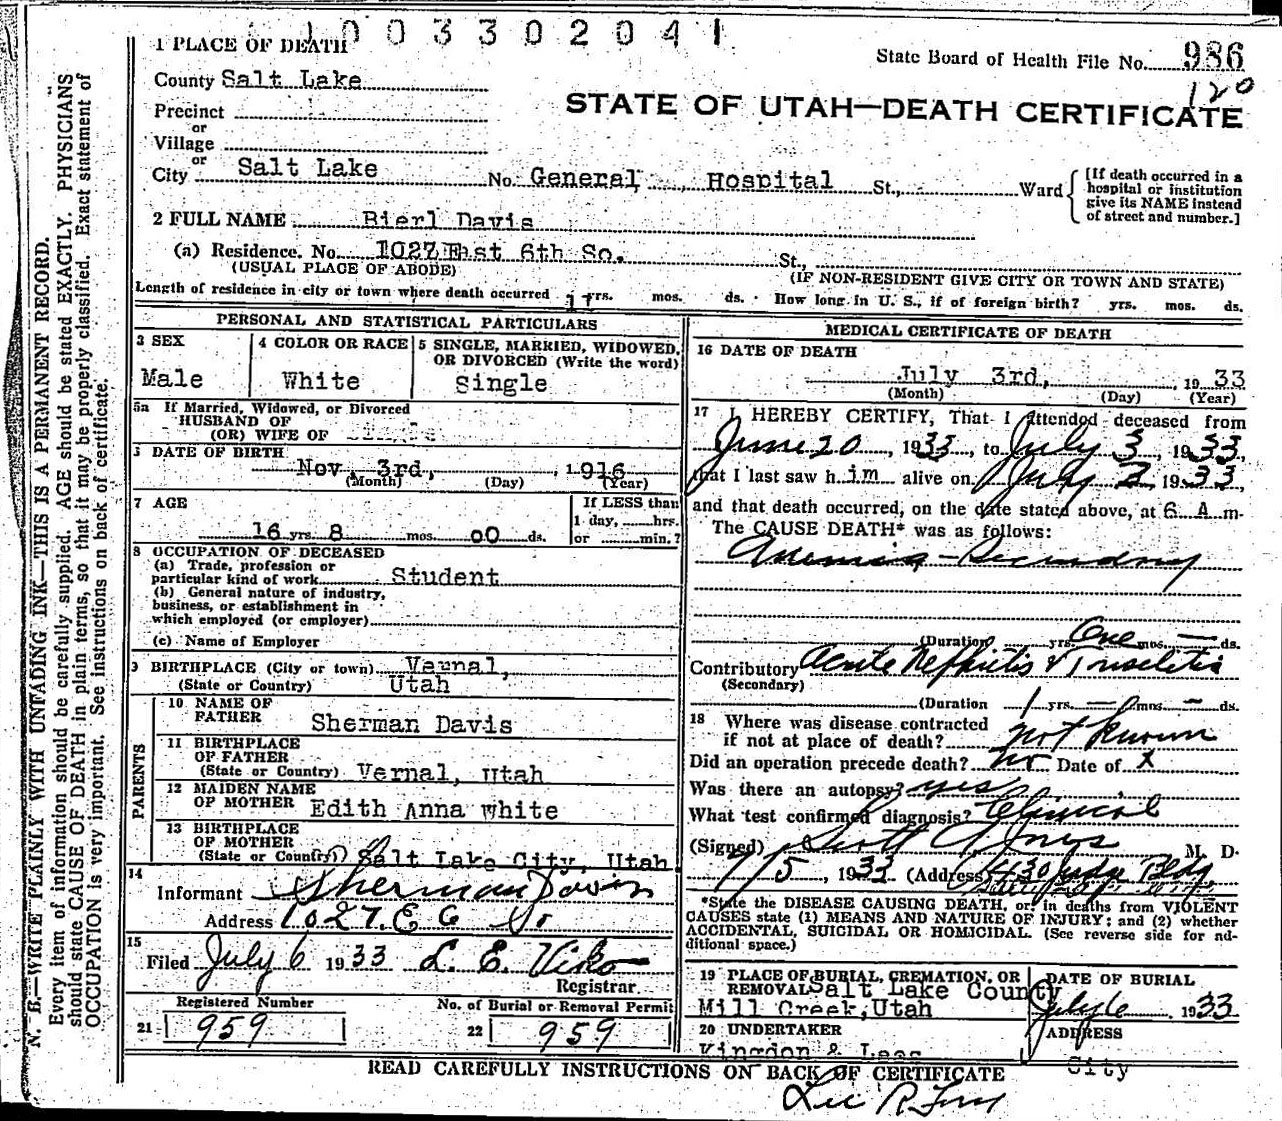 1003302041
1 PLACE OF DEATH
State Board of Health File No. 986
120
County Salt Lake
STATE OF UTAH—DEATH CERTIFICATE
Precinct
or
Village
or
City Salt Lake No. General Hospital St., Ward
[If death occurred in a
hospital or institution
give its NAME instead
of street and number.]
2 FULL NAME Bierl Davis
(a) Residence. No. 1027 East 6th So. St.,
(USUAL PLACE OF ABODE) (IF NON-RESIDENT GIVE CITY OR TOWN AND STATE)
Length of residence in city or town where death occurred yrs. mos. ds. How long in U. S., if of foreign birth? yrs. mos. ds.
PERSONAL AND STATISTICAL PARTICULARS
3 SEX
Male
4 COLOR OR RACE
White
5 SINGLE, MARRIED, WIDOWED,
OR DIVORCED (Write the word)
Single
5a If Married, Widowed, or Divorced
HUSBAND OF
(OR) WIFE OF
DATE OF BIRTH
Nov. 3rd, 1916
(Month) (Day) (Year)
7 AGE
16 yrs. 8 mos. 00 ds.
If LESS than
1 day, hrs.
or min.?
8 OCCUPATION OF DECEASED
(a) Trade, profession or
particular kind of work Student
(b) General nature of industry,
business, or establishment in
which employed (or employer)
(c) Name of Employer
9 BIRTHPLACE (City or town) Vernal,
(State or Country) Utah
PARENTS
10 NAME OF
FATHER Sherman Davis
11 BIRTHPLACE
OF FATHER
(State or Country) Vernal, Utah
12 MAIDEN NAME
OF MOTHER Edith Anna White
13 BIRTHPLACE
OF MOTHER
(State or Country) Salt Lake City, Utah
14
Informant Sherman Davis
Address 1027 E 6 So
15
Filed July 6 1933 L. E. Viko
Registrar.
Registered Number
21 959
No. of Burial or Removal Permit
22 959
MEDICAL CERTIFICATE OF DEATH
16 DATE OF DEATH
July 3rd, 1933
(Month) (Day) (Year)
17 I HEREBY CERTIFY, That I attended deceased from
June 20, 1933, to July 3, 1933,
that I last saw him alive on July 2 1933,
and that death occurred, on the date stated above, at 6 A m.
The CAUSE DEATH* was as follows:
Anemia - Secondary
(Duration yrs. One mos. — ds.
Contributory Acute Nephritis &
(Secondary)
(Duration 1 yrs. — mos. — ds.
18 Where was disease contracted
if not at place of death? not known
Did an operation precede death? no Date of x
Was there an autopsy? yes
What test confirmed diagnosis? Clinical
(Signed) Scott A Jones M. D.
7/5, 1933 (Address) 430 Judge Bldg.
*State the DISEASE CAUSING DEATH, or in deaths from VIOLENT
CAUSES state (1) MEANS AND NATURE OF INJURY; and (2) whether
ACCIDENTAL, SUICIDAL OR HOMICIDAL. (See reverse side for ad-
ditional space.)
19 PLACE OF BURIAL, CREMATION, OR
REMOVAL Salt Lake County
Mill Creek, Utah
DATE OF BURIAL
July 6 1933
20 UNDERTAKER
Kingdon & Lees
ADDRESS
City
READ CAREFULLY INSTRUCTIONS ON BACK OF CERTIFICATE
N. B.—WRITE PLAINLY WITH UNFADING INK—THIS IS A PERMANENT RECORD.
Every item of information should be carefully supplied. AGE should be stated EXACTLY. PHYSICIANS
should state CAUSE OF DEATH in plain terms, so that it may be properly classified. Exact statement of
OCCUPATION is very important. See instructions on back of certificate.